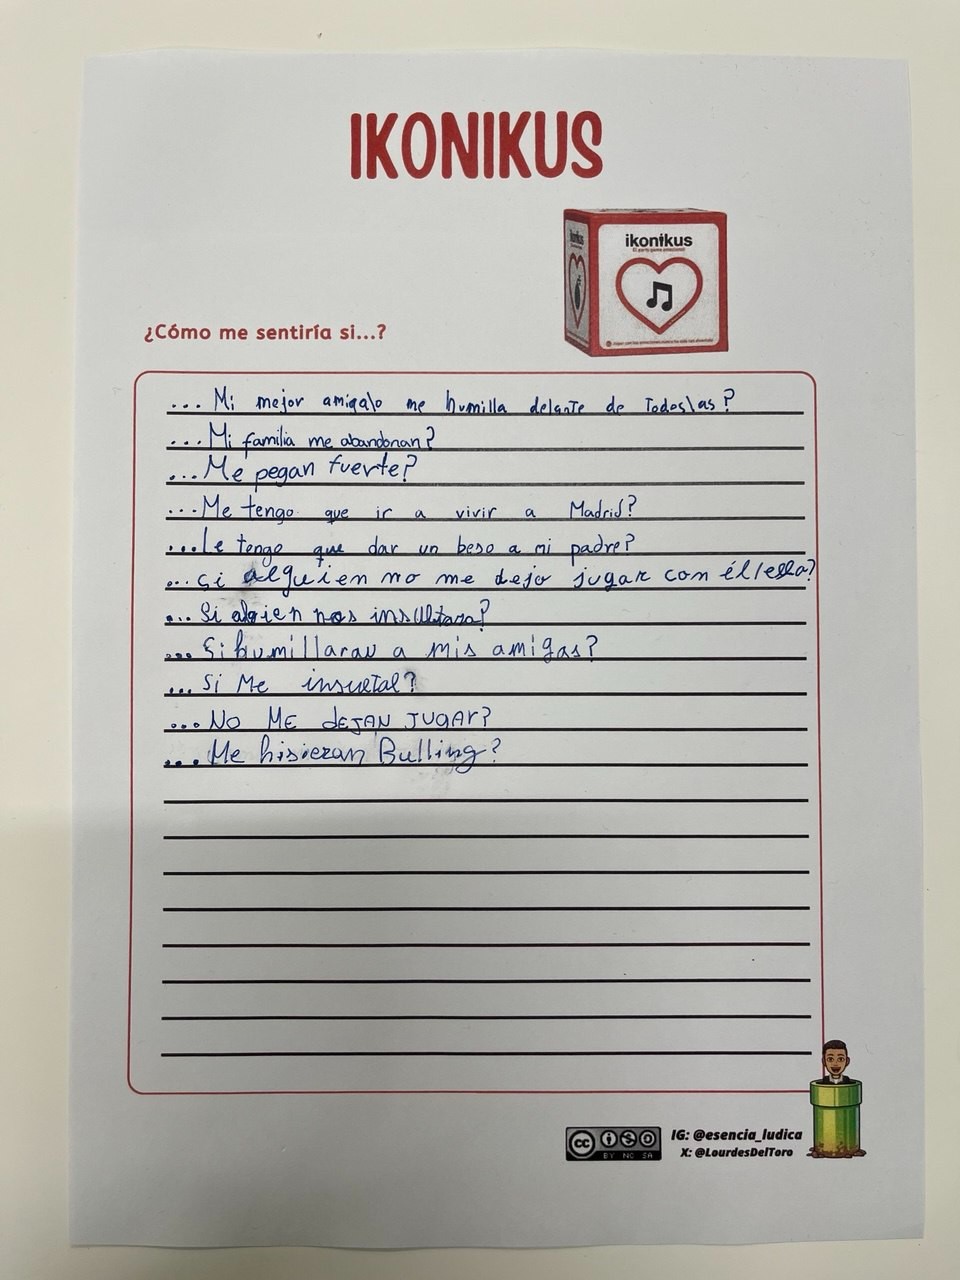 IKONIKUS
ikonikus
El party game emocional
ikonikus
¿Cómo me sentiría si...?
... Mi mejor amiga/o me humilla delante de Todos\as?
... Mi familia me abandonan?
... Me pegan fuerte?
... Me tengo que ir a vivir a Madrid?
... Le tengo que dar un beso a mi padre?
... si alguien no me dejo jugar con él/ella?
... Si algien nos insultara?
... Si humillaran a mis amigas?
... Si Me insultal?
... NO ME dEJAN JUGAR?
... Me hisieran Bulling?
cc
BY NC SA
IG: @esencia_ludica
X: @LourdesDelToro